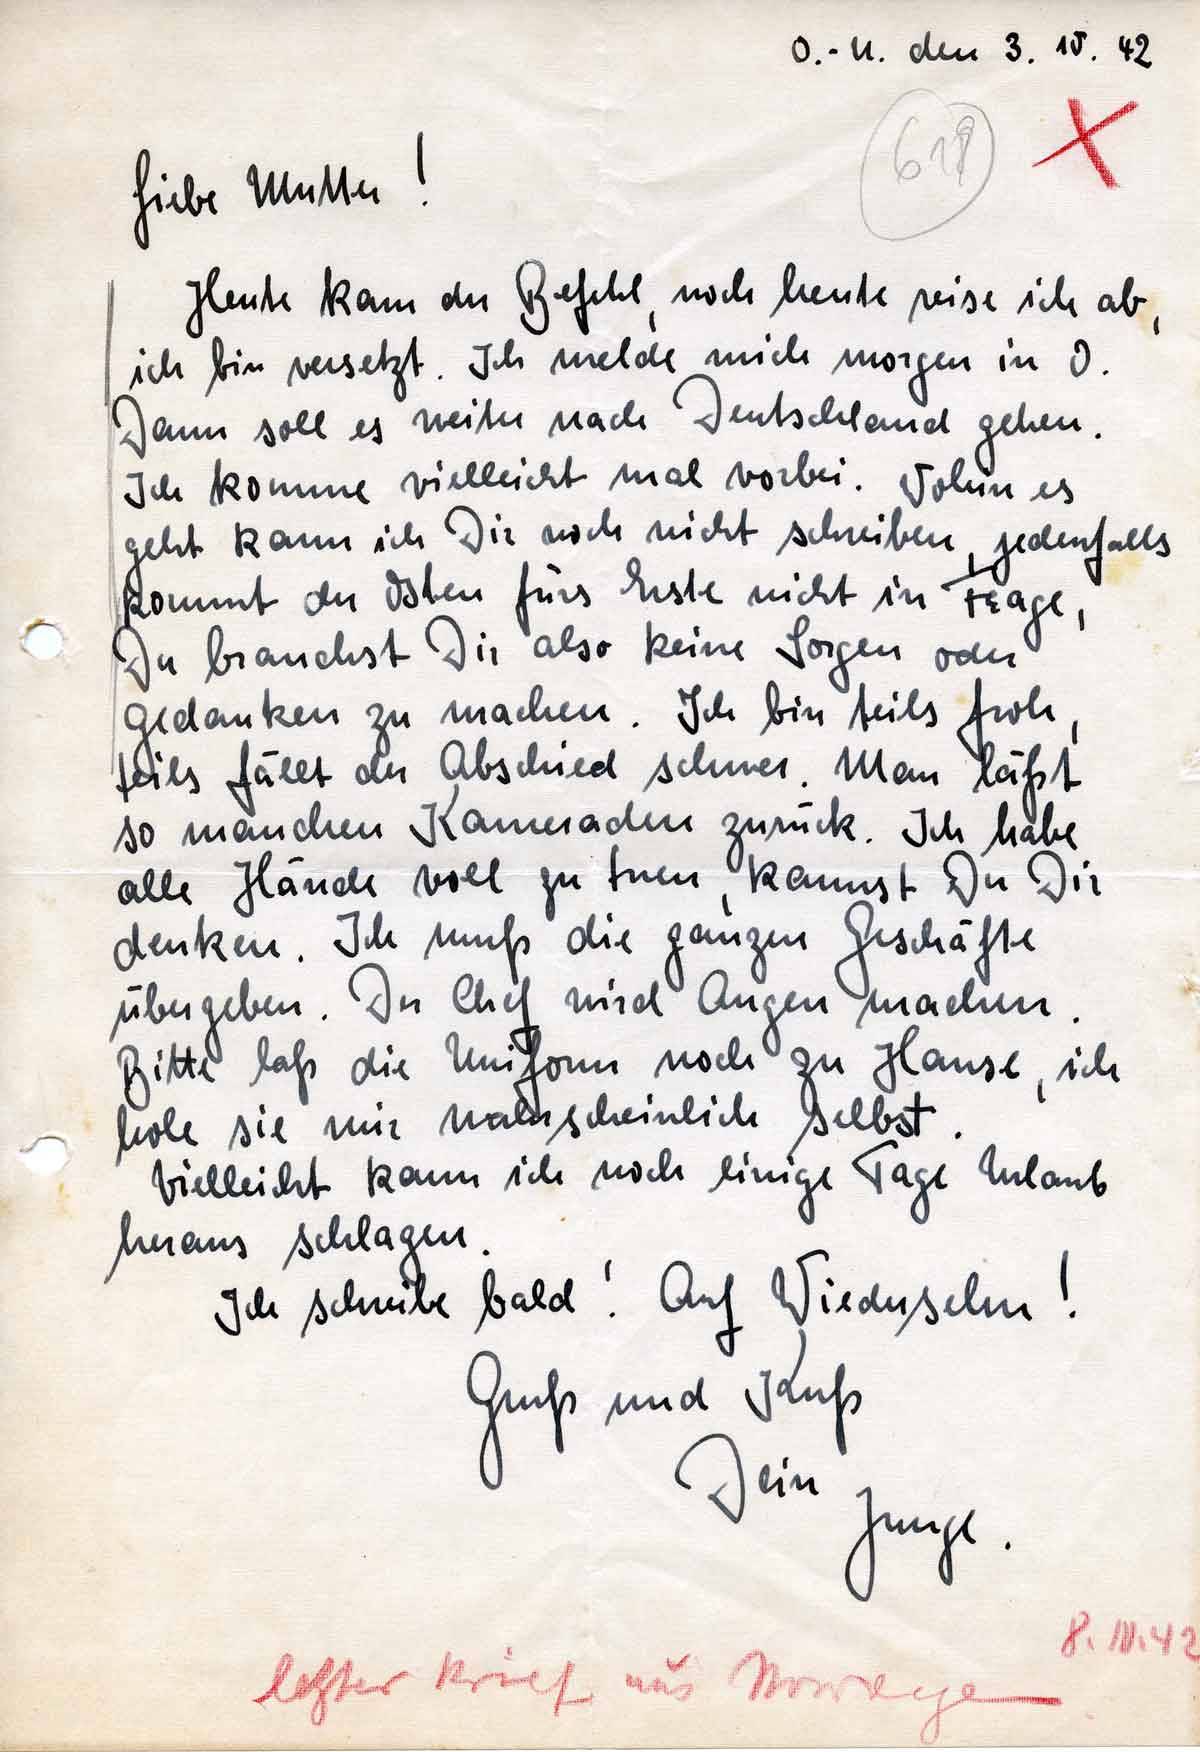 O.-U. den 3. IV. 42
618
Liebe Mutter!
Heute kam der Befehl, noch heute reise ich ab,
ich bin versetzt. Ich melde mich morgen in O.
Dann soll es weiter nach Deutschland gehen.
Ich komme vielleicht mal vorbei. Wohin es
geht kann ich Dir noch nicht schreiben, jedenfalls
kommt der Osten fürs Erste nicht in Frage,
Du brauchst Dir also keine Sorgen oder
Gedanken zu machen. Ich bin teils froh,
teils fällt der Abschied schwer. Man läßt
so manchen Kameraden zurück. Ich habe
alle Hände voll zu tuen, kannst Du Dir
denken. Ich muß die ganzen Geschäfte
übergeben. Der Chef wird Augen machen.
Bitte laß die Uniform noch zu Hause, ich
hole sie mir wahrscheinlich selbst.
Vielleicht kann ich noch einige Tage Urlaub
heraus schlagen.
Ich schreibe bald! Auf Wiedersehn!
Gruß und Kuß
Dein
Junge.
8. IV. 42
letzter Brief aus Norwegen